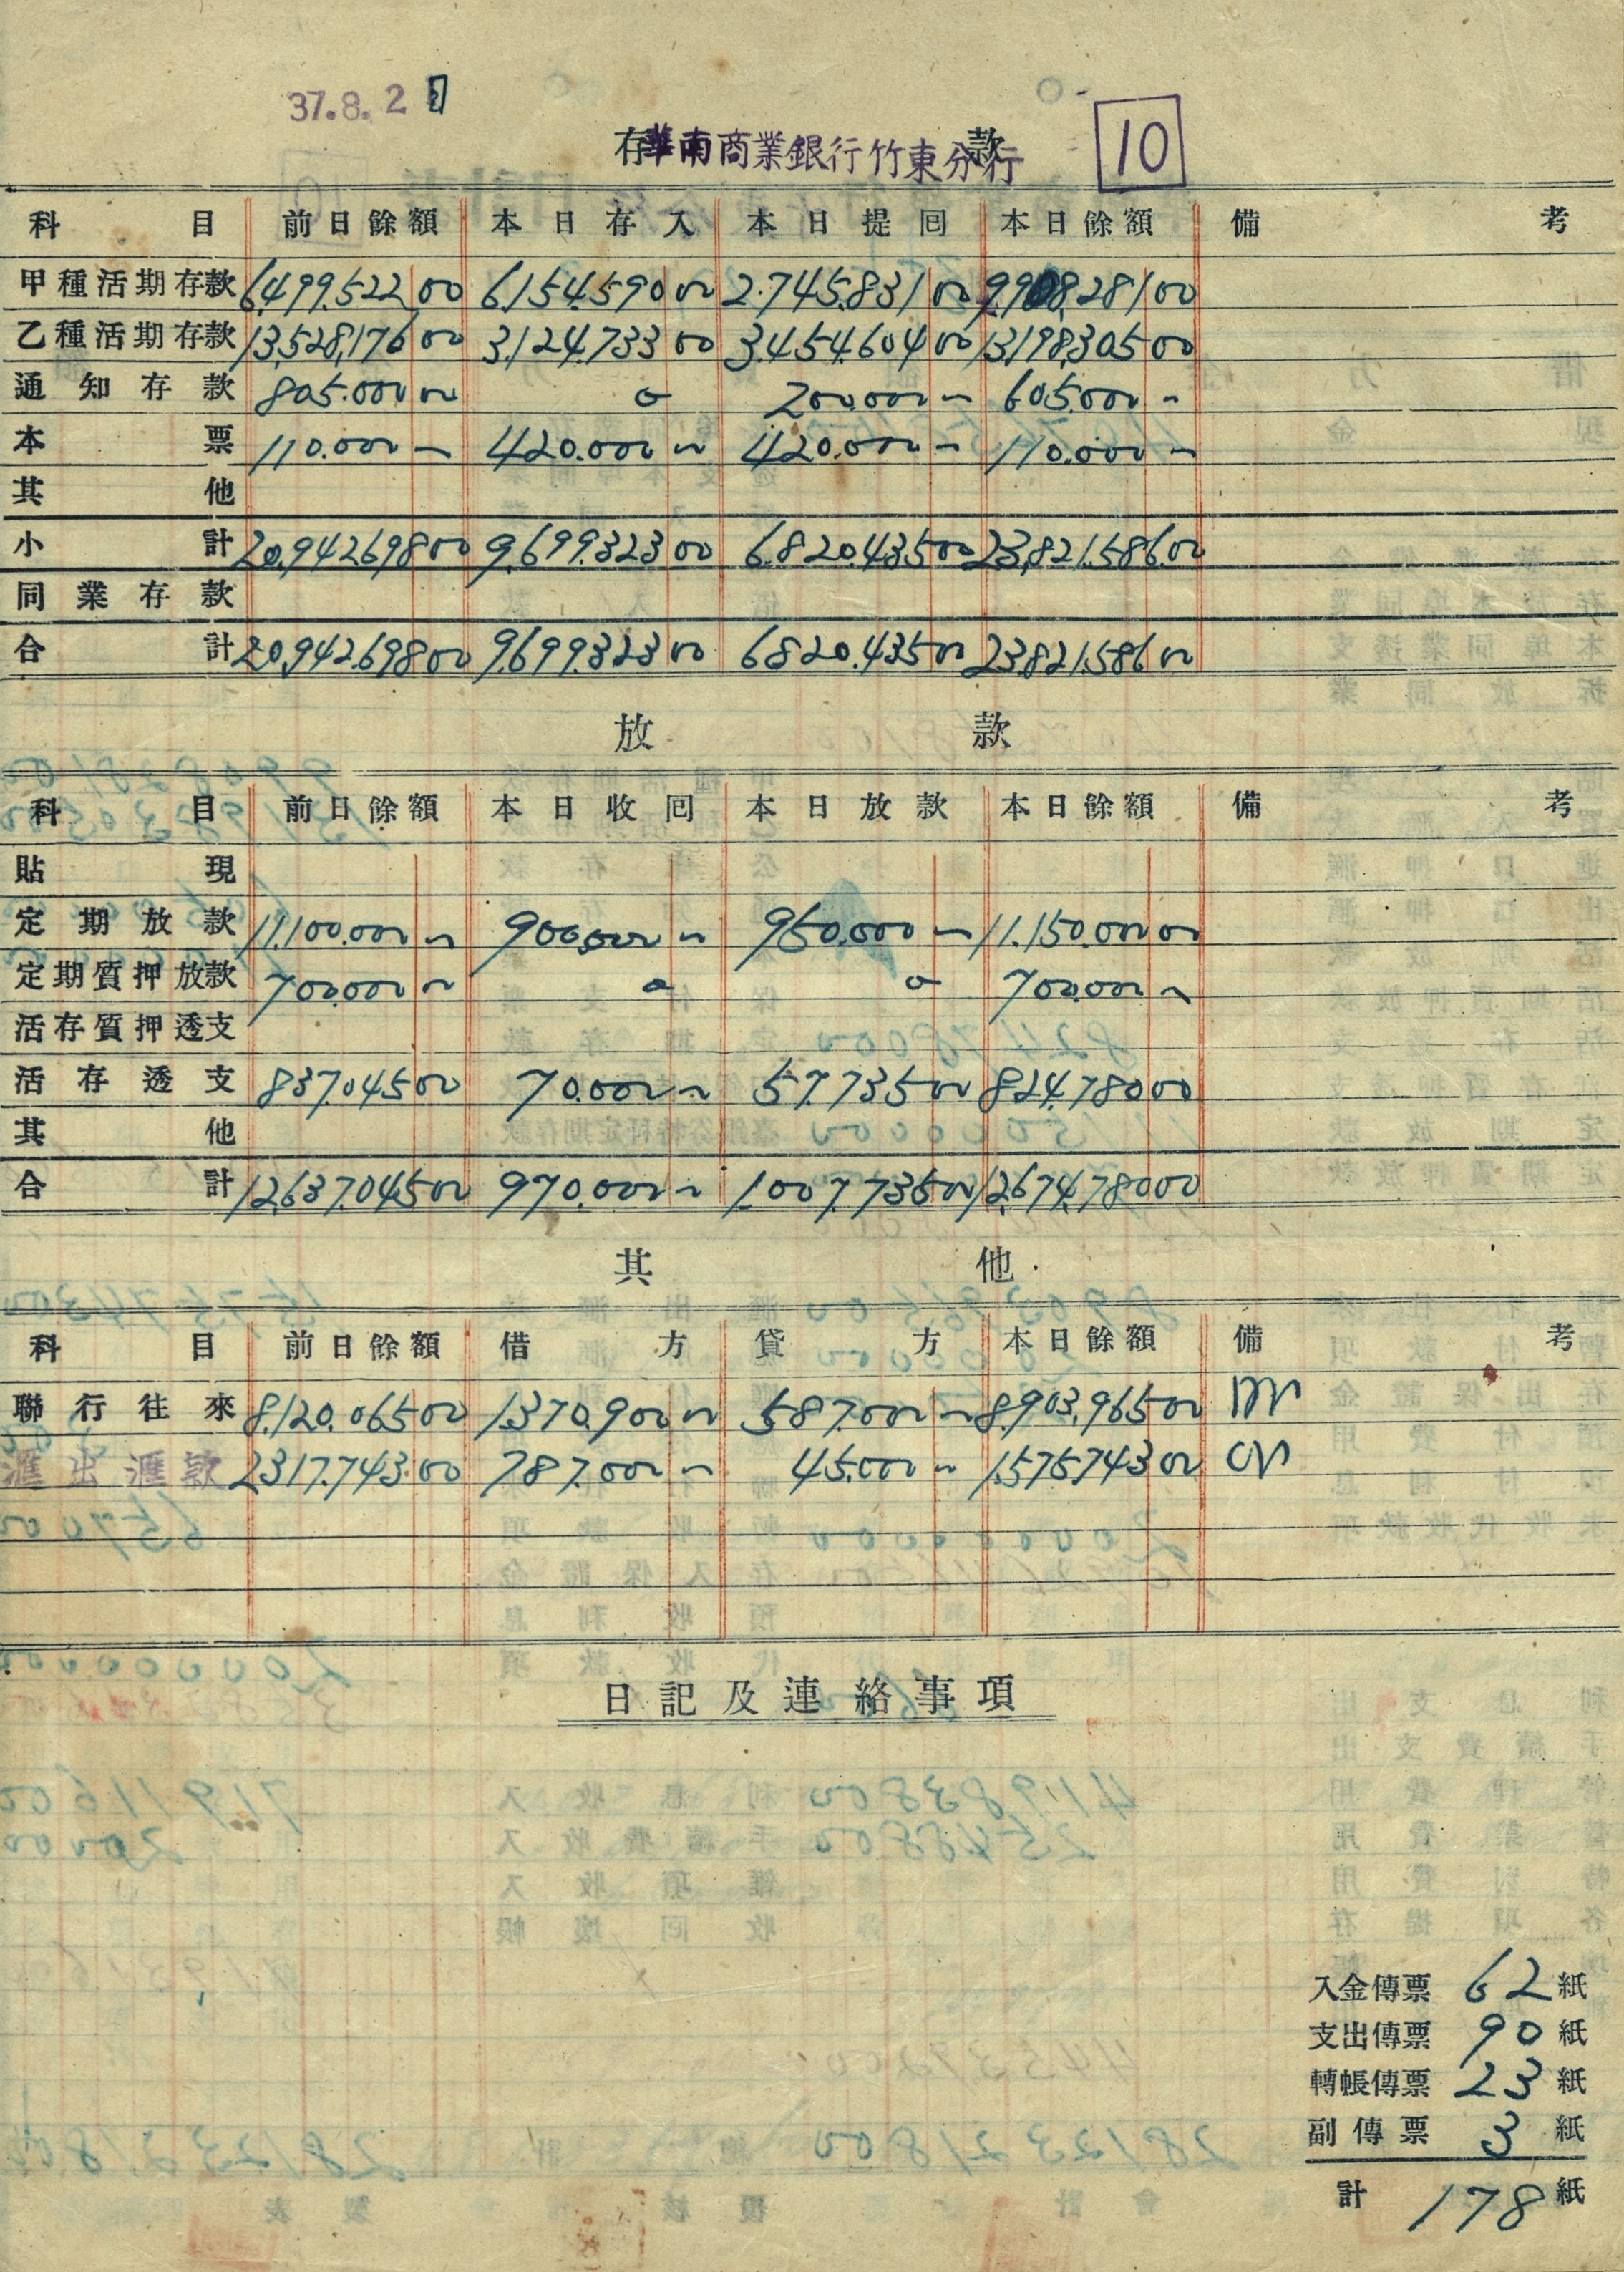 37.8.2
存 款
華南商業銀行竹東分行
10
科目 前日餘額 本日存入 本日提回 本日餘額 備考
甲種活期存款 6,499.522 00 6,154.590 00 2.745.831 00 9,908,281 00
乙種活期存款 13,528,176 00 3,124.733 00 3.454.604 00 13,198,305 00
通知存款 805.000 00 0 200.000 — 605.000 —
本票 110.000 — 420.000 — 420.000 — 110.000 —
其他
小計 20,942,698 00 9,699.323 00 6.820.435 00 23,821.586.00
同業存款
合計 20,942.698 00 9,699.323 00 6,820.435 00 23,821.586 00
放款
科目 前日餘額 本日收回 本日放款 本日餘額 備考
貼現
定期放款 11.100.000 — 900.000 — 950.000 — 11.150.000 00
定期質押放款 700.000 — 0 0 700.000 —
活存質押透支
活存透支 837.045 00 70.000 — 57.735 00 824.780 00
其他
合計 12,637.045 00 970.000 — 1.007.735 00 12,674.780 00
其他
科目 前日餘額 借方 貸方 本日餘額 備考
聯行往來 8,120.065 00 1,370.900 00 587.000 — 8,903,965 00
滙出滙款 2,317.743.00 787.000 — 45.000 — 1,575,743 00
日記及連絡事項
入金傳票 62 紙
支出傳票 90 紙
轉帳傳票 23 紙
副傳票 3 紙
計 178 紙